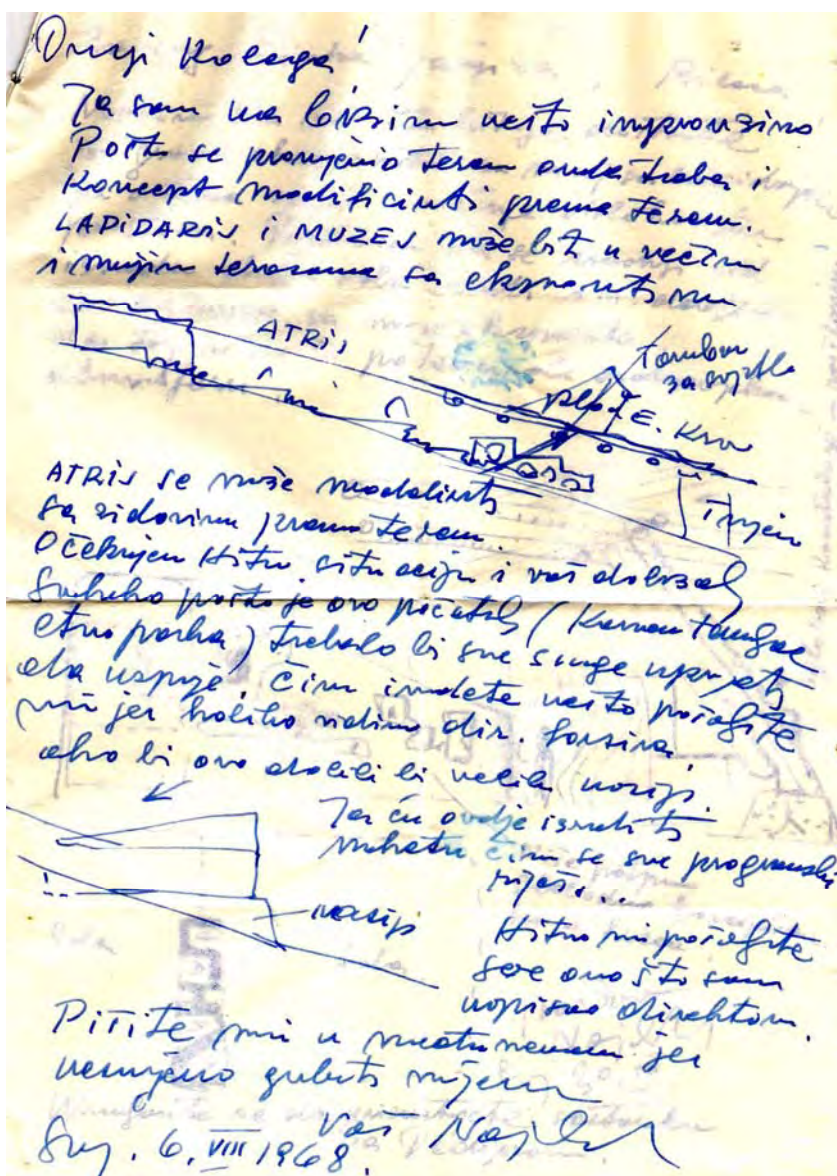 Dragi Kolega!
Ja sam na brzinu nešto improvizirao
Pošto se promjenio teren onda treba i
Koncept modificirati prema terenu.
LAPIDARIJ i MUZEJ može biti u većim
i manjim terasama sa eksponatima
ATRIJ
za svjetlo
E. Krov
ATRIJ se može modelirati
sa zidovima prema terenu.
Očekujem Hitno situaciju i vaš dolazak
pošto je ovo početak (
etno parka) trebalo bi sve snage uprijeti
da uspije. Čim imadete nešto pošaljite
mi jer koliko vidim dir. forsira.
ako bi ovo
Ja ću ovdje izraditi
maketu čim se sve programski
riješi...
nasip
Hitno mi pošaljite
sve ono što sam
napisao direktoru.
Pišite mi u međuvremenu jer
nesmijemo gubiti
Vaš
Saraj. 6. VIII 1968.